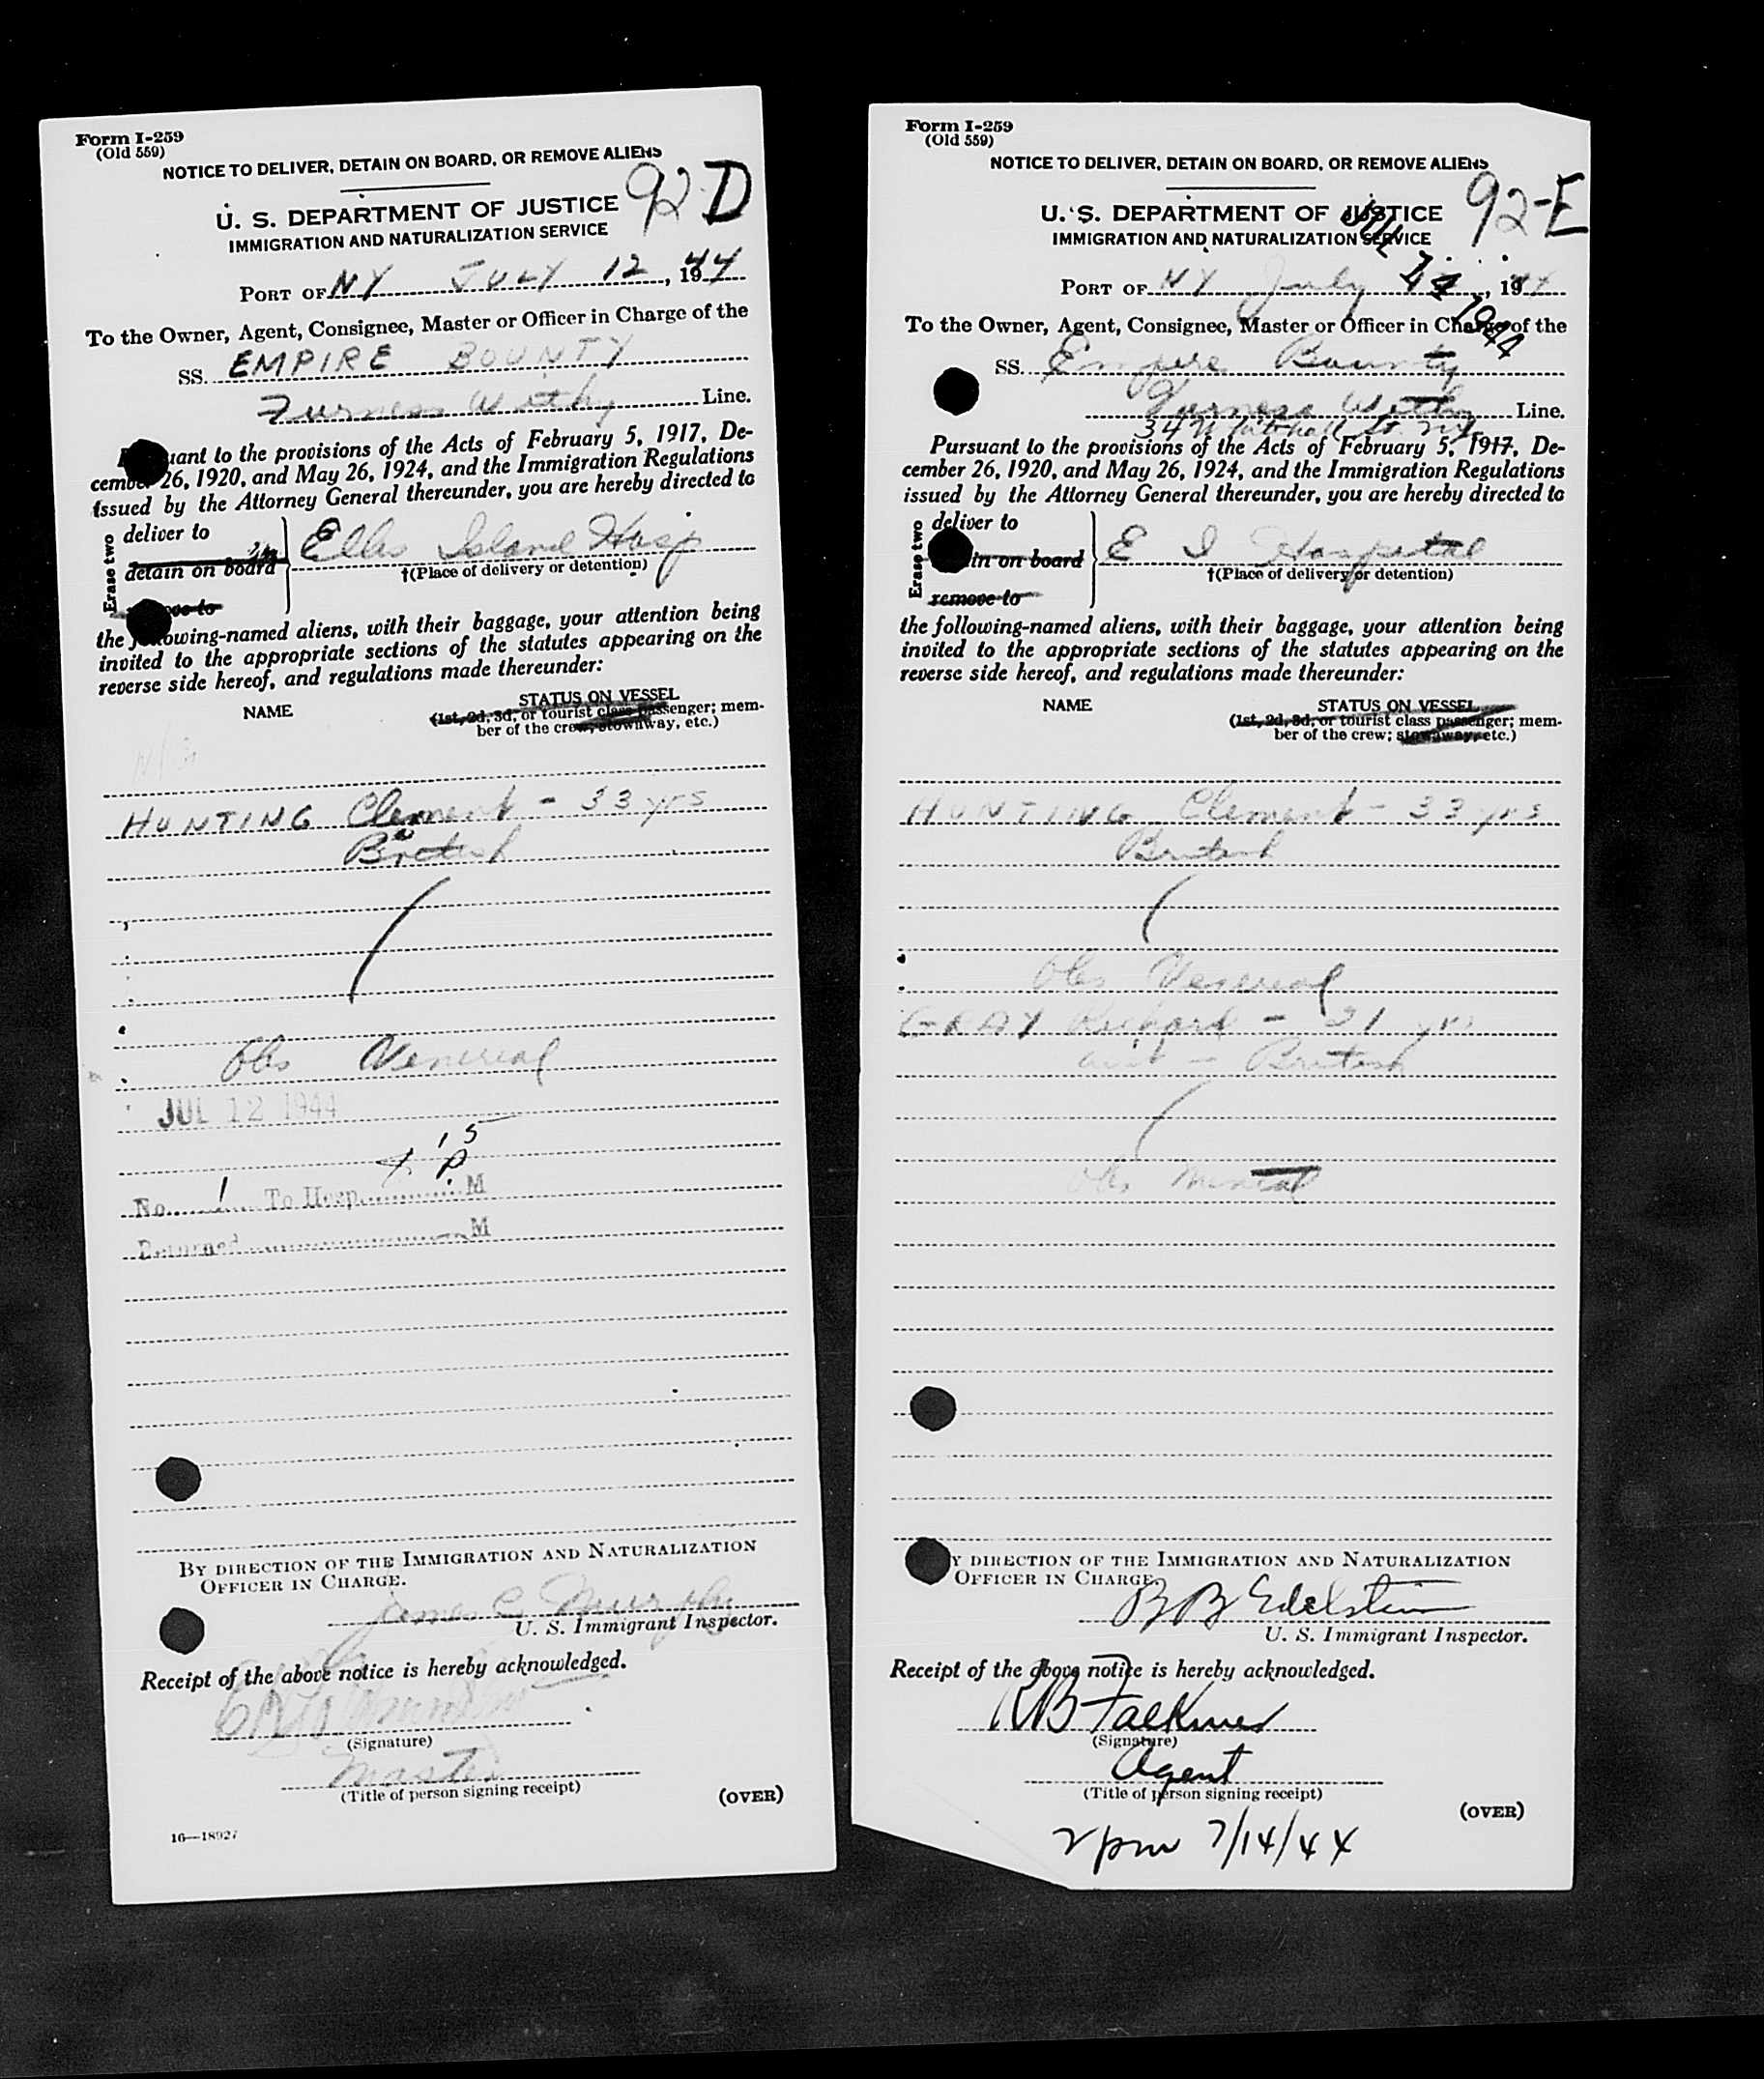 Form I-259
(Old 559)
NOTICE TO DELIVER, DETAIN ON BOARD, OR REMOVE ALIENS
92 D
U. S. DEPARTMENT OF JUSTICE
IMMIGRATION AND NATURALIZATION SERVICE
PORT OF NY JULY 12, 1944
To the Owner, Agent, Consignee, Master or Officer in Charge of the
SS. EMPIRE BOUNTY
Furness Withy Line.
uant to the provisions of the Acts of February 5, 1917, De-
cember 26, 1920, and May 26, 1924, and the Immigration Regulations
issued by the Attorney General thereunder, you are hereby directed to
Erase two
deliver to
detain on board
ve to
Ellis Island Hosp
†(Place of delivery or detention)
the following-named aliens, with their baggage, your attention being
invited to the appropriate sections of the statutes appearing on the
reverse side hereof, and regulations made thereunder:
NAME
STATUS ON VESSEL
(1st, 2d, 3d, or tourist class passenger; mem-
ber of the crew; stowaway, etc.)
HUNTING Clement - 33 yrs
British
Obs Venereal
JUL 12 1944
No. 1 To Hosp. M
Returned M
BY DIRECTION OF THE IMMIGRATION AND NATURALIZATION
OFFICER IN CHARGE.
James G Murphy
U. S. Immigrant Inspector.
Receipt of the above notice is hereby acknowledged.
(Signature)
Master
(Title of person signing receipt)
(OVER)
16—18927
Form I-259
(Old 559)
NOTICE TO DELIVER, DETAIN ON BOARD, OR REMOVE ALIENS
92-E
U. S. DEPARTMENT OF JUSTICE
IMMIGRATION AND NATURALIZATION SERVICE
JUL 14 1944
PORT OF NY July 14, 1944
To the Owner, Agent, Consignee, Master or Officer in Charge of the
SS. Empire Bounty
Furness Withy Line.
34 Whitehall St. NY
Pursuant to the provisions of the Acts of February 5, 1917, De-
cember 26, 1920, and May 26, 1924, and the Immigration Regulations
issued by the Attorney General thereunder, you are hereby directed to
Erase two
deliver to
in on board
remove to
E I Hospital
†(Place of delivery or detention)
the following-named aliens, with their baggage, your attention being
invited to the appropriate sections of the statutes appearing on the
reverse side hereof, and regulations made thereunder:
NAME
STATUS ON VESSEL
(1st, 2d, 3d, or tourist class passenger; mem-
ber of the crew; stowaway, etc.)
HUNTING Clement - 33 yrs
British
Obs Venereal
GRAY Richard - 21 yrs
British
Obs Mental
Y DIRECTION OF THE IMMIGRATION AND NATURALIZATION
OFFICER IN CHARGE
B B Edelstein
U. S. Immigrant Inspector.
Receipt of the above notice is hereby acknowledged.
RB Falkner
(Signature)
Agent
(Title of person signing receipt)
(OVER)
2 pm 7/14/44